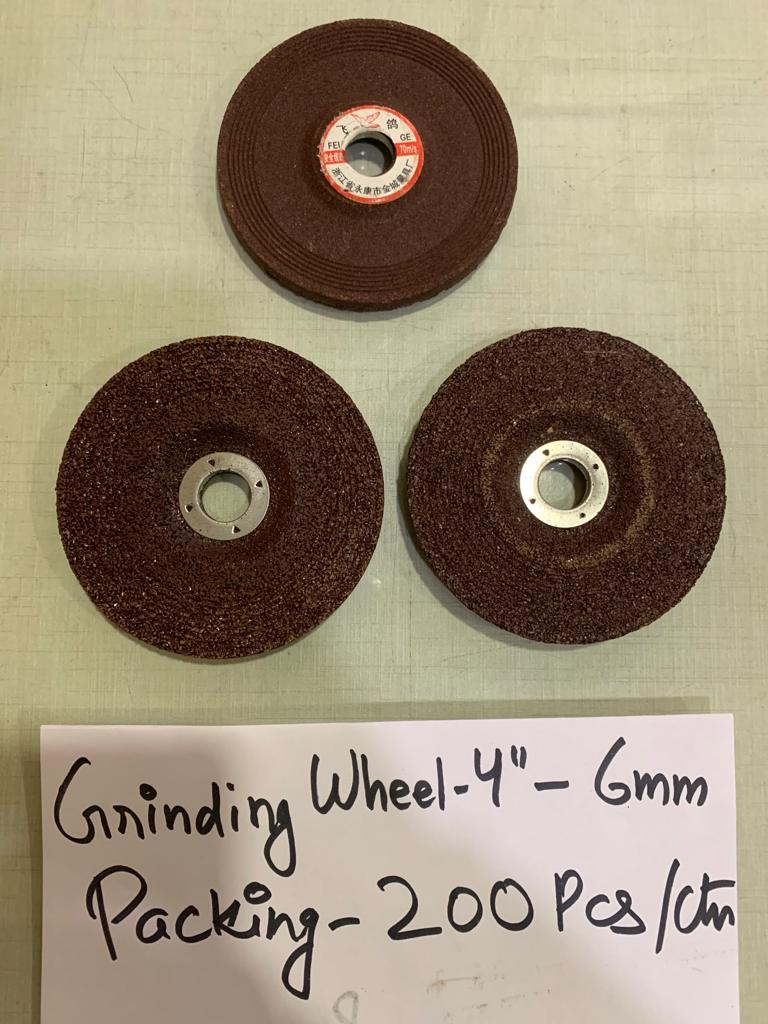 飞 鸽
FEI GE
70m/s
浙江省永康市金城磨具厂
Grinding Wheel-4"- 6mm
Packing- 200 Pcs/Ctn